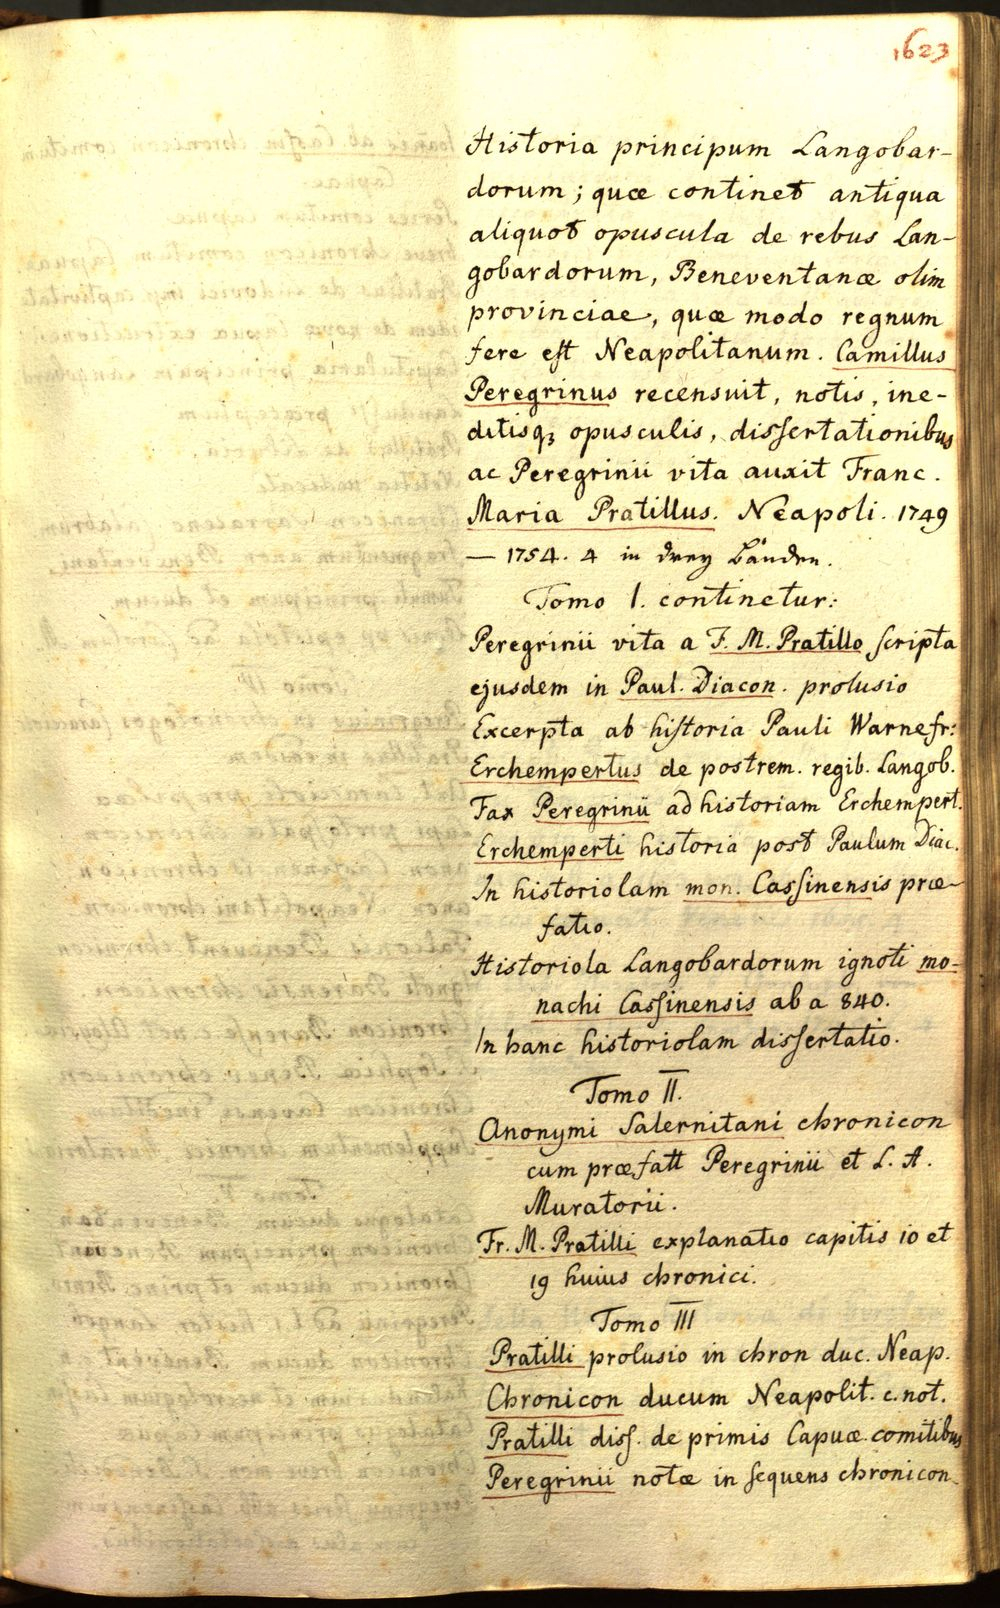 1623
Historia principum Langobar-
dorum; quæ continet antiqua
aliquot opuscula de rebus Lan-
gobardorum, Beneventanæ olim
provinciae, quæ modo regnum
fere eſt Neapolitanum. Camillus
Peregrinus recensuit, notis, ine-
ditisqꝫ opusculis, disſertationibus
ac Peregrinii vita auxit Franc.
Maria Pratillus. Neapoli. 1749
— 1754. 4 in drey Bänden.
Tomo I. continetur:
Peregrinii vita a F. M. Pratillo ſcripta
ejusdem in Paul. Diacon. prolusio
Excerpta ab hiſtoria Pauli Warnefr:
Erchempertus de postrem. regib. Langob.
Fax Peregrinii ad historiam Erchempert.
Erchemperti historia post Paulum Diac.
In historiolam mon. Casſinensis præ-
fatio.
Historiola Langobardorum ignoti mo-
nachi Casſinensis ab a 840.
In hanc historiolam disſertatio.
Tomo II.
Anonymi Salernitani chronicon
cum præfatt Peregrinii et L. A.
Muratorii.
Fr. M. Pratilli explanatio capitis 10 et
19 huius chronici.
Tomo III
Pratilli prolusio in chron duc. Neap.
Chronicon ducum Neapolit. c. not.
Pratilli disſ. de primis Capuæ comitibus
Peregrinii notæ in ſequens chronicon